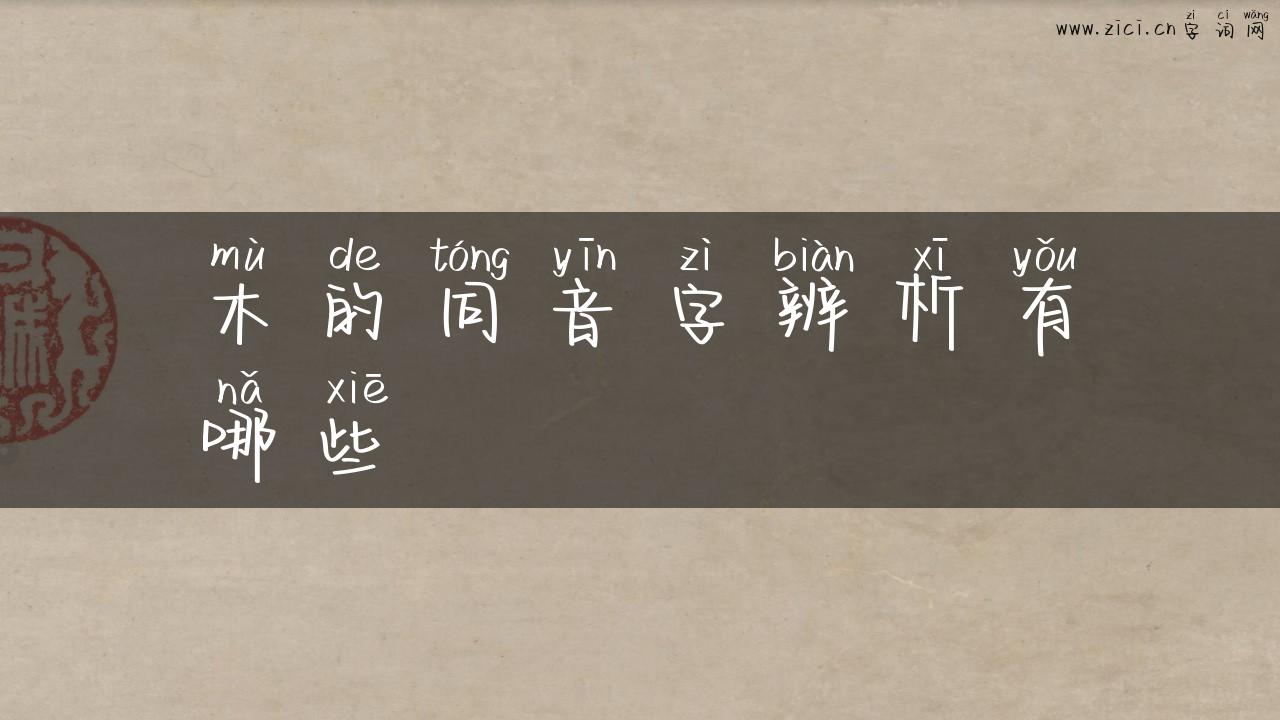 zì cí wǎng
www.zici.cn字词网
mù de tóng yīn zì biàn xī yǒu
木的同音字辨析有
nǎ xiē
哪些